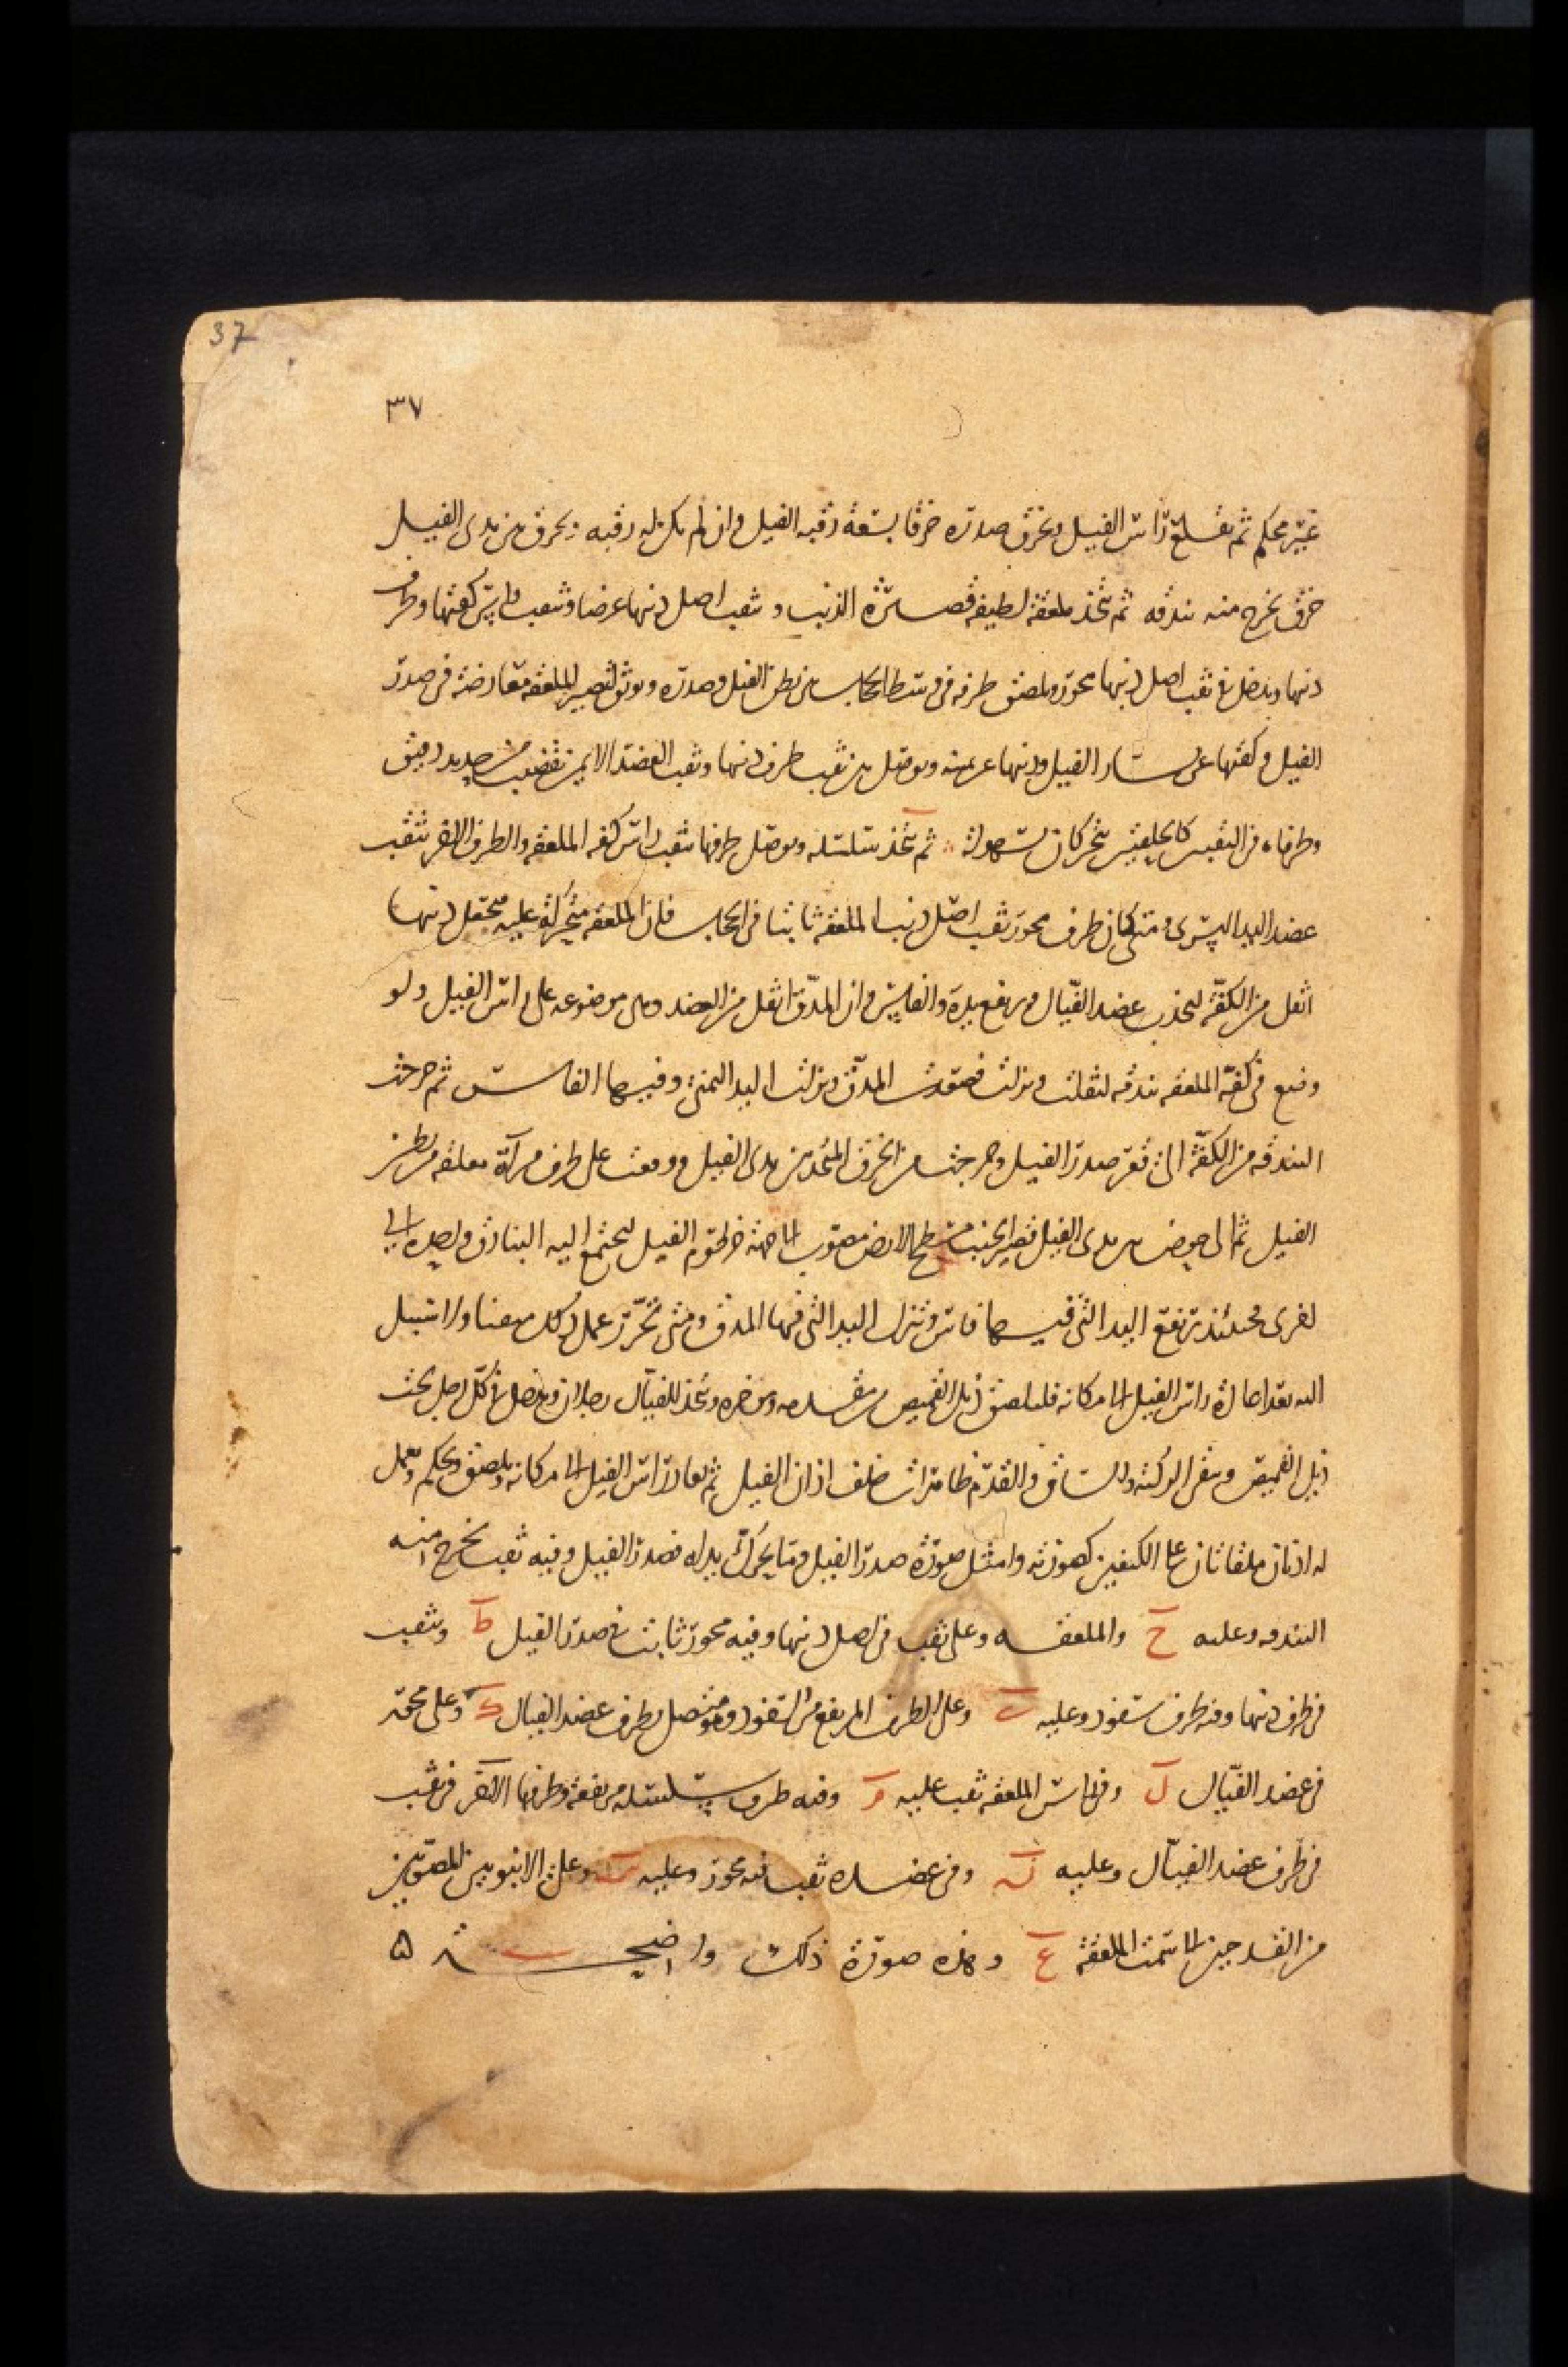 37
٣٧
غير محكم ثم يقلع راس الفيل ويخرق صدره خرقا بسعة رقبة الفيل وان لم يكن له رقبه ويخرق بين يدى الفيل
خرق يخرج منه بندقه ثم يتخذ ملعقة لطيفه قصيرة الذنب ويثقب اصل ذنبها عرضا ويثقب راس كفتها وطرف
ذنبها ويدخل فى ثقب اصل ذنبها محور ويلصق طرفه فى وسط الجانبين من بطن الفيل وصدره ويوثق لتصير الملعقه معارضة فى صدر
الفيل وكفتها عن يسار الفيل وذنبها عن يمينه ويوصل بين ثقب طرف ذنبها وثقب العضد الايمن بقضيب حديد دقيق
وطرفاه فى الثقبين كالحلقتين يتحركان بسهولة ثم يتخذ سلسله ويوصل طرفها بثقب راس كفه الملعقه والطرف الاخر بثقب
عضد اليد اليسرى ومتى كان طرف محور ثقب اصل ذنب الملعقه ثابتا فى الجانبين فان الملعقه متحركة عليه فتجعل ذنبها
اثقل من الكفة ليجذب عضد الفيال ويرتفع يده والفاس وان المدق اثقل من العضد وهى موضوعه على راس الفيل ولو
وضع فى كفة الملعقه بندقه لثقلت ونزلت فصعدت المدق ونزلت اليد اليمنى وفيها الفاس ثم خرجت
البندقه من الكفة الى قعر صدر الفيل وخرجت من الخرق المتخذ بين يدى الفيل ووقعت على طرف مرآة معلقه من بطن
الفيل ثم الى حوض بين يدى الفيل قصير الجنب مسطح الارض مصوب الى جهة خرطوم الفيل ليجتمع اليه البنادق
اخرى فحينئذ ترتفع اليد التى فيها فاس وتنزل اليد التى فيها المدق ومتى تحرر عمل ذلك
اليه بعد اعادة راس الفيل الى مكانه فليلصق ذيل القميص من مقدمه ومؤخره ويتخذ للفيال رجلان ويدخل كل رجل تحت
ذيل القميص ويبقى الركبة والساق والقدم ظاهرات خلف اذان الفيل ثم يعاد راس الفيل الى مكانه ويلصق ويحكم ويعمل
له اذنان ملقاتان على الكتفين كصورته وامثل صورة صدر الفيل وما يحرك يداه فصدر الفيل وفيه ثقب يخرج منه
البندقه وعليه ح والملعقه وعلى ثقب فى اصل ذنبها وفيه محور ثابت فى صدر الفيل ط وثقب
فى طرف ذنبها وفيه طرف سفود وعليه وعلى الطرف المرتفع من السفود وهو متصل بطرف عضد الفيال ك وعلى محور
فى عضد الفيال ل وفى راس الملعقه ثقب عليه م وفيه طرف سلسله مرتفعة وطرفها الاخر فى ثقب
فى طرف عضد الفيال وعليه ن وفى عضده ثقب فيه محور وعليه س وعلى الانبوبين المصوبين
من الفدجين الى سمت الملعقة ع وهذه صورة ذلك واضحة ه